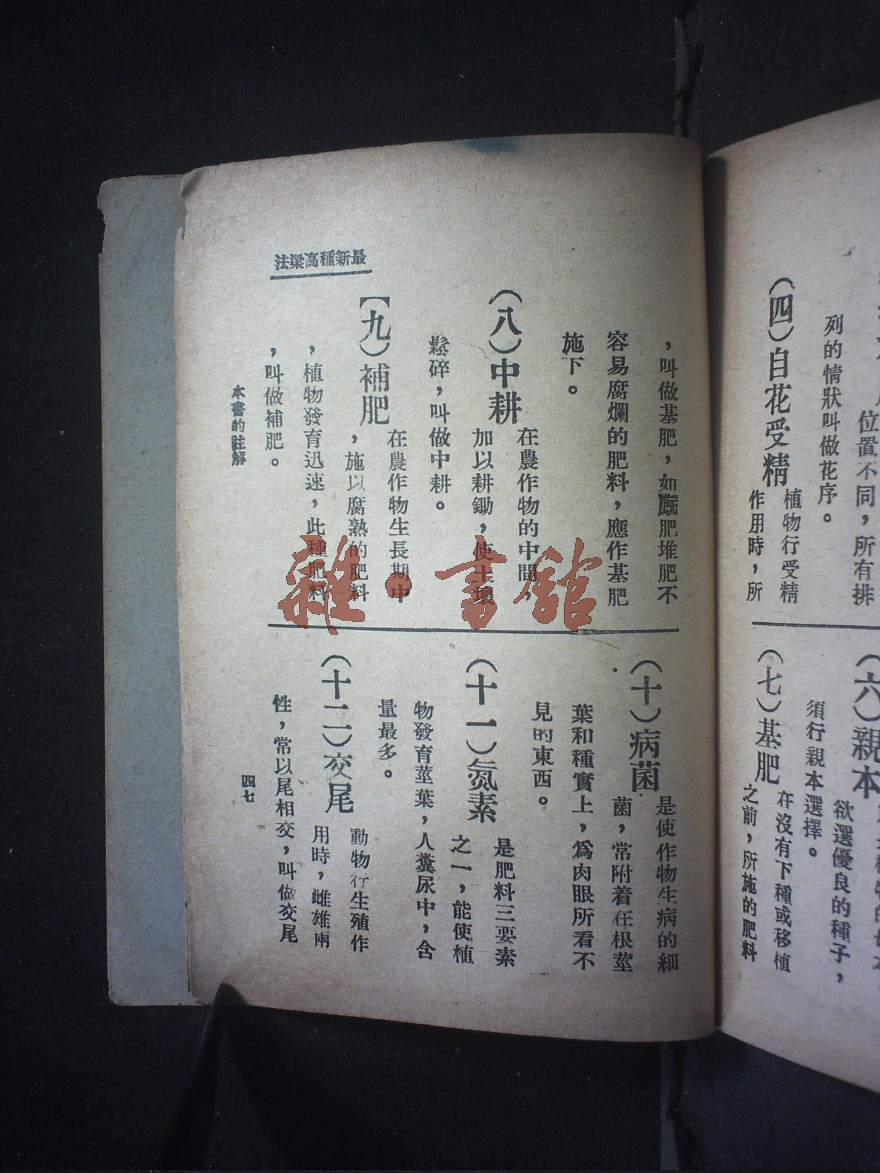 位置不同，所有排
列的情狀叫做花序。
（四）自花受精
植物行受精
作用時，所
（六）親本
欲選優良的種子，
須行親本選擇。
（七）基肥
在沒有下種或移植
之前，所施的肥料
最新種高粱法
，叫做基肥，如廐肥堆肥不
容易腐爛的肥料，應作基肥
施下。
（八）中耕
在農作物的中間，
加以耕鋤，使土壤
鬆碎，叫做中耕。
（九）補肥
在農作物生長期中
，施以腐熟的肥料
，植物發育迅速，此種肥料
，叫做補肥。
（十）病菌
是使作物生病的細
菌，常附着在根莖
葉和種實上，爲肉眼所看不
見的東西。
（十一）氮素
是肥料三要素
之一，能使植
物發育莖葉，人糞尿中，含
量最多。
（十二）交尾
動物行生殖作
用時，雌雄兩
性，常以尾相交，叫做交尾
本書的註解
四七
雜·書舘